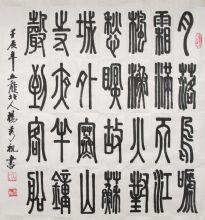 月落烏嗁
霜滿天江
楓漁火對
愁眠故蘇
城外寒山
寺夜半鐘
聲到客船
壬辰年人楊書